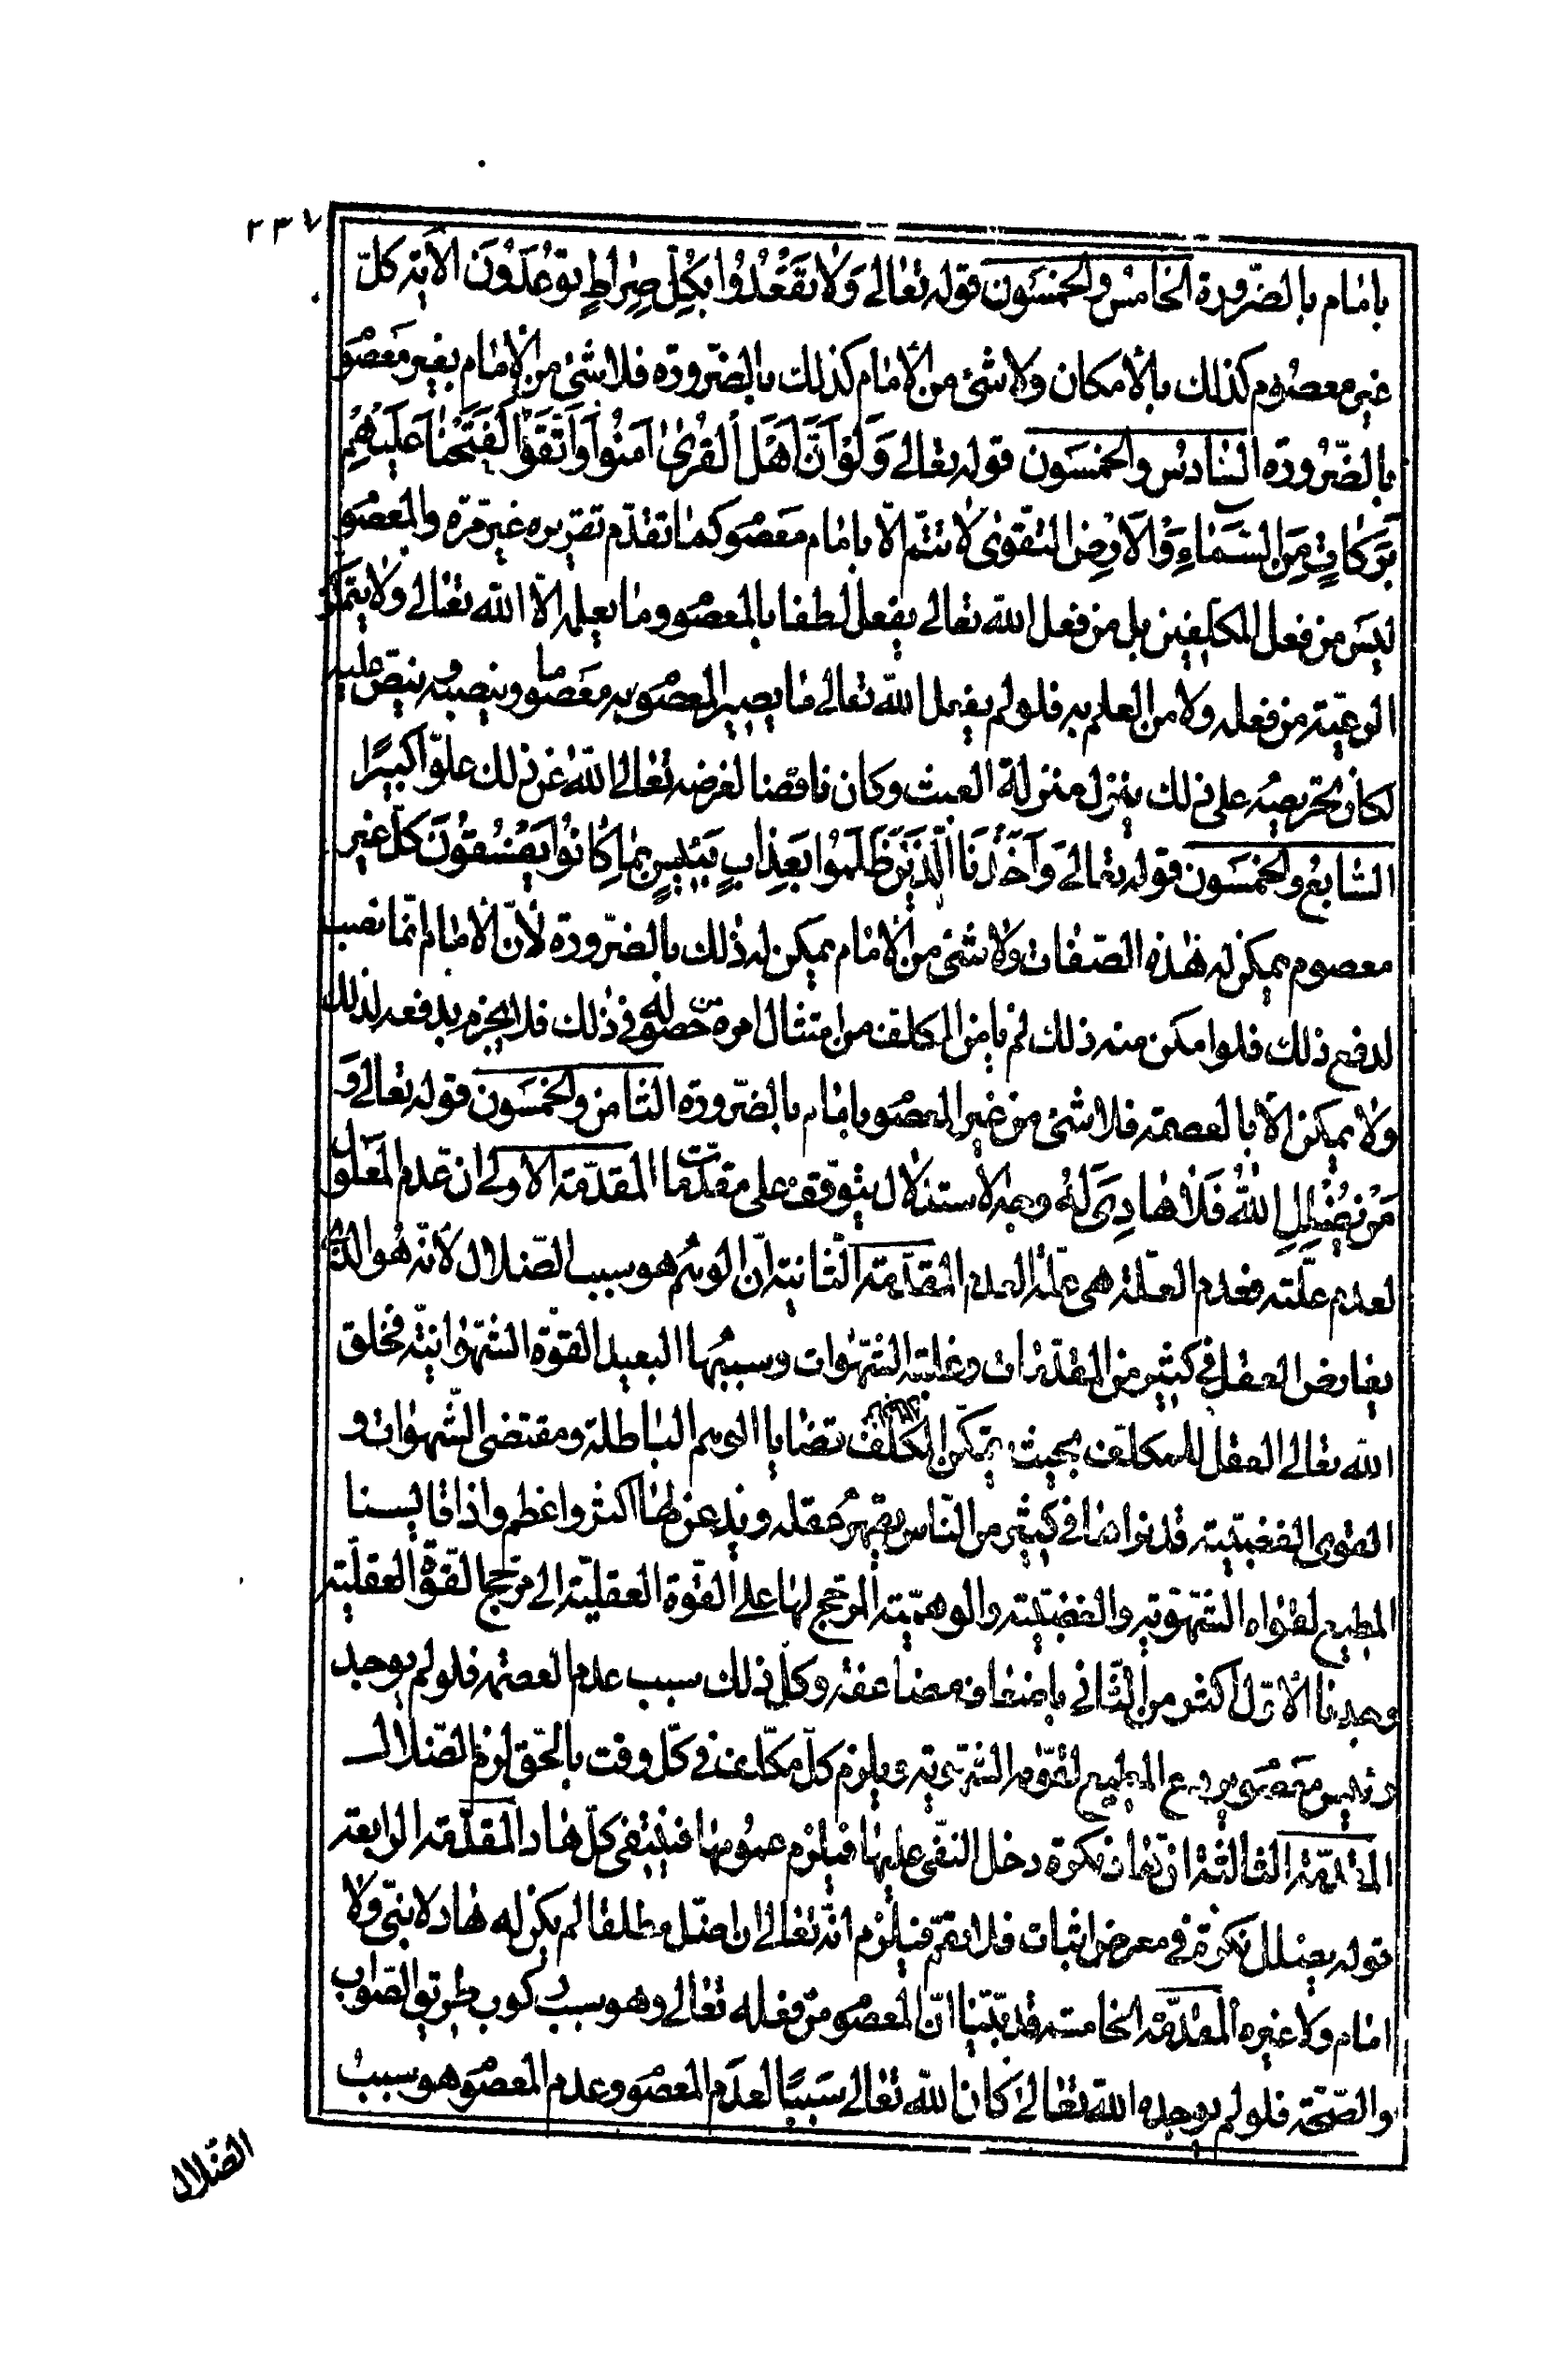 ٢٣٧
بامام بالضّرورة الخامس والخمسون قوله تعالى وَلا تَقْعُدُوا بِكُلِّ صِراطٍ تُوعِدُونَ الآية كلّ
غير معصوم كذلك بالامكان ولا شئ من الامام كذلك بالضّرورة فلا شئ من الامام بغير معصو
بالضّرورة السّادس والخمسون قوله تعالى وَلَوْ اَنَّ اَهْلَ الْقُرىٰ اٰمَنُوا وَاتَّقَوْا لَفَتَحْنا عَلَيْهِمْ
بَرَكاتٍ مِنَ السَّماءِ وَالْاَرْضِ التقوىٰ لا تتمّ الّا بامام معصو كما تقدّم تقريره غير مرة والمعصو
ليس من فعل المكلفين بل من فعل الله تعالى يفعل لطفا بالمعصو وما يعلمه الّا الله تعالى ولا يتمكن
الرعيّة من فعله ولا من العلم به فلو لم يفعل الله تعالى ما يصير المعصو به معصوما وينصبه وينصّ عليه
لكان تحريصه على ذلك ينزل منزلة العبث وكان ناقصا لغرضه تعالى الله عن ذلك علوّا كبيرًا
السّابع والخمسون قوله تعالى وَاَخَذْنَا الَّذينَ ظَلَمُوا بِعَذابٍ بَئيسٍ بِما كانُوا يَفْسُقُونَ كلّ غير
معصوم يمكن له هذه الصّفات ولا شئ من الامام يمكن له ذلك بالضّرورة لأنّ الامام انّما نصب
لدفع ذلك فلو امكن منه ذلك لم يامن المكلف من امتثال امره من حصوله في ذلك فلا يجزم بدفعه لذلك
ولا يمكن الّا بالعصمة فلا شئ من غير المعصو بامام بالضّرورة الثامن والخمسون قوله تعالى وَ
مَنْ يُضْلِلِ اللهُ فَلا هادِىَ لَهُ وجه الاستدلال يتوقف على مقدّمات المقدّمة الاولى انّ عدم المعلول
لعدم علّته فعدم العلّة هى علّة العدم المقدّمة الثانية انّ الوهم هو سبب الضلال لأنّه هو الذى
يعارض العقل في كثير من المقدّمات وغلبة الشّهوات وسببها البعيد القوّة الشّهوانيّة فخلق
الله تعالى العقل للمكلّف بحيث يتمكّن المكلّف قضايا الوهم الباطلة ومقتضى الشّهوات و
القوى الغضبيّة قد نراها في كثير من النّاس يقهر عقله ويذعن لها اكثر واعظم واذا قايسنا
المطيع لقواه الشّهويّة والغضبيّة والوهميّة المرجّح لها على القوّة العقليّة الى مرجّح القوّة العقليّة
وجدنا الاوّل اكثر من الثّاني باضعاف مضاعفة وكلّ ذلك سبب عدم العصمة فلو لم يوجد
رئيس معصو يردع المطيع لقوّته الشهويّة ويلزم كلّ مكلّف في كلّ وقت بالحّق لزم الضّلال
المقدّمة الثالثة انّ هاد نكرة دخل النّفى عليها فيلزم عمومها فينتفى كلّ هاد المقدّمة الرابعة
قوله يضلل نكرة في معرض اثبات فلا تعمّ فيلزم انّه تعالى ان اضلّ مطلقا لم يكن له هاد لا نبيّ ولا
امام ولا غيره المقدّمة الخامسة قد بيّنّا انّ المعصو من فعله تعالى وهو سبب ركوب طريق الصّواب
والصّحّة فلو لم يوجده الله تعالى كان الله تعالى سَببًا لعدم المعصو وعدم المعصو هو سبب
الضّلال